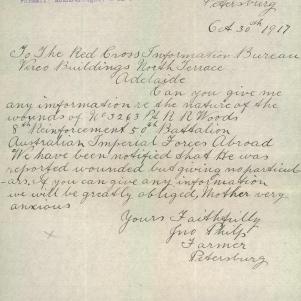 Petersburg
Oct 30th 1917
To The Red Cross Information Bureau
Verco Buildings North Terrace
Adelaide
Can you give me
any information re the nature of the
wounds of No 3263 Pt R R Woods
8th Reinforcement 50th Battalion
Australian Imperial Forces Abroad
We have been notified that He was
reported wounded but giving no particul
-ars, if you can give any information
we will be greatly obliged, Mother very
anxious
Yours Faithfully
Jno Philp
Farmer
Petersburg